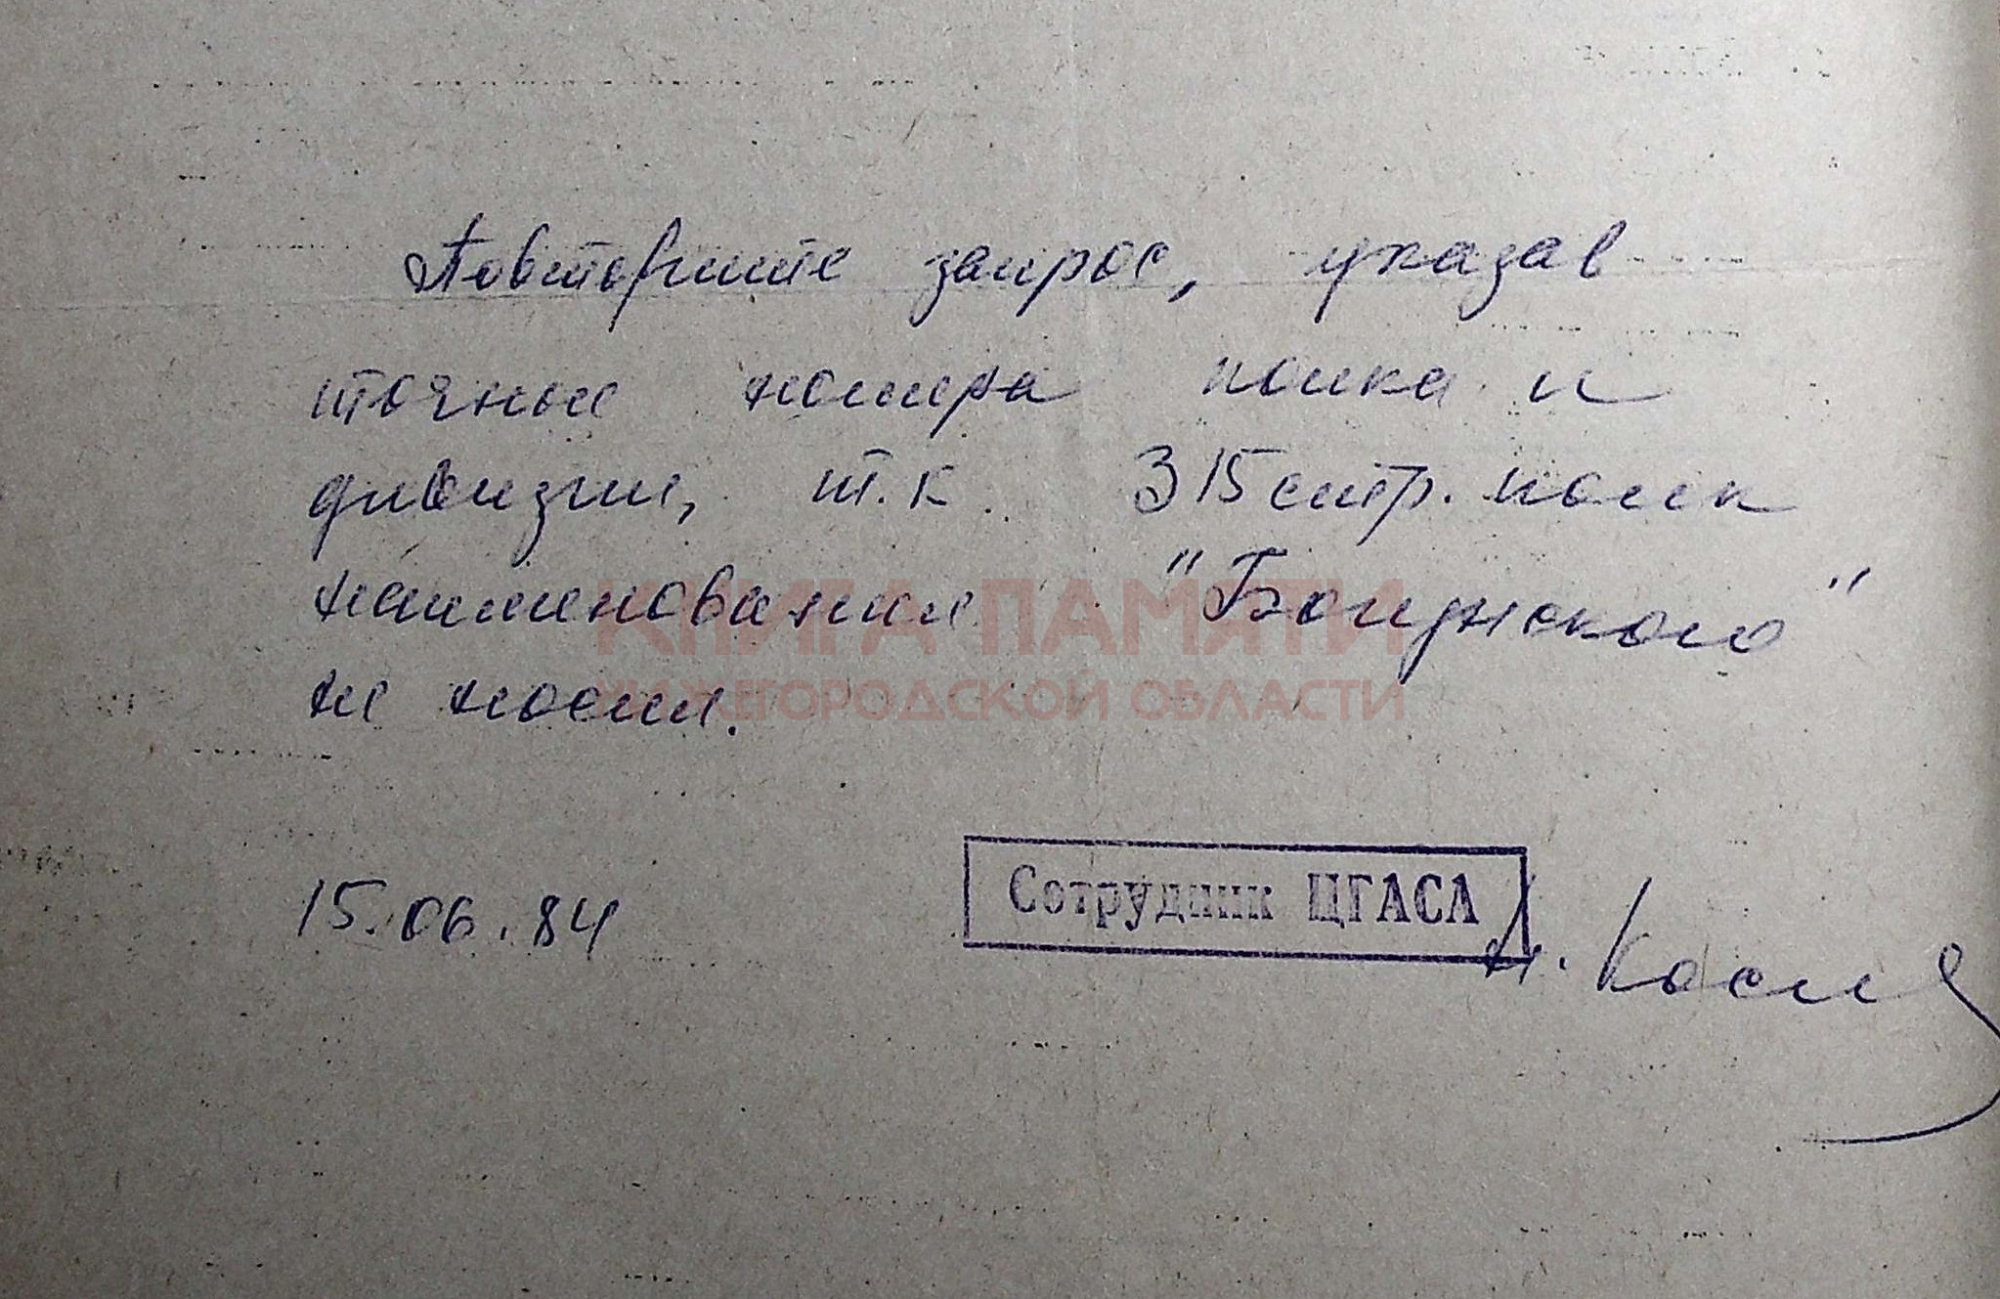 Повторите запрос, указав
точные номера полка и
дивизии, т.к. 315 стр. полк
наименование "Богунского"
не носил.
КНИГА ПАМЯТИ
НИЖЕГОРОДСКОЙ ОБЛАСТИ
15.06.84
Сотрудник ЦГАСА